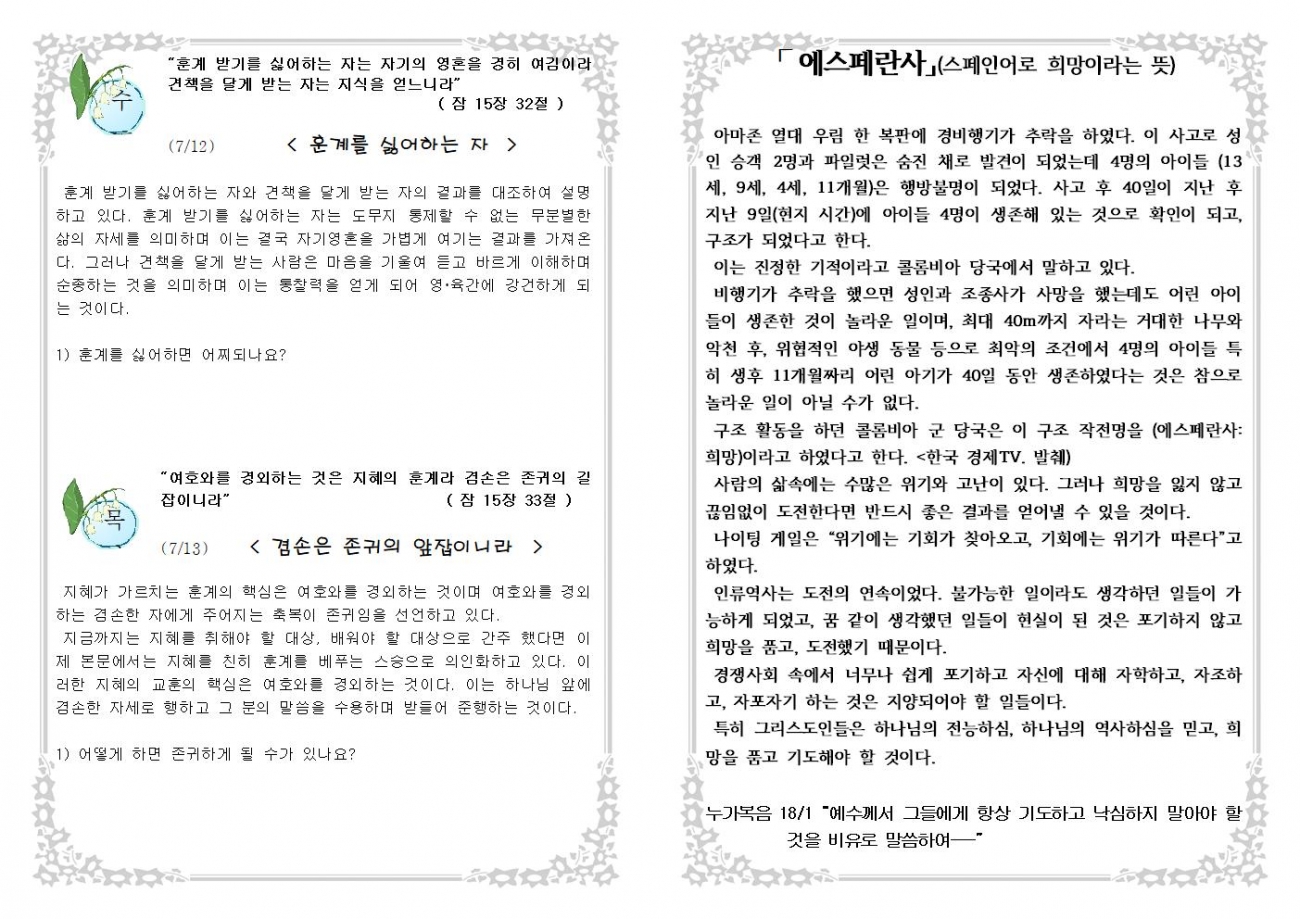 수
"훈계 받기를 싫어하는 자는 자기의 영혼을 경히 여김이라
견책을 달게 받는 자는 지식을 얻느니라"
( 잠 15장 32절 )
(7/12) < 훈계를 싫어하는 자 >
훈계 받기를 싫어하는 자와 견책을 달게 받는 자의 결과를 대조하여 설명
하고 있다. 훈계 받기를 싫어하는 자는 도무지 통제할 수 없는 무분별한
삶의 자세를 의미하며 이는 결국 자기영혼을 가볍게 여기는 결과를 가져온
다. 그러나 견책을 달게 받는 사람은 마음을 기울여 듣고 바르게 이해하며
순종하는 것을 의미하며 이는 통찰력을 얻게 되어 영·육간에 강건하게 되
는 것이다.
1) 훈계를 싫어하면 어찌되나요?
목
"여호와를 경외하는 것은 지혜의 훈계라 겸손은 존귀의 길
잡이니라" ( 잠 15장 33절 )
(7/13) < 겸손은 존귀의 앞잡이니라 >
지혜가 가르치는 훈계의 핵심은 여호와를 경외하는 것이며 여호와를 경외
하는 겸손한 자에게 주어지는 축복이 존귀임을 선언하고 있다.
지금까지는 지혜를 취해야 할 대상, 배워야 할 대상으로 간주 했다면 이
제 본문에서는 지혜를 친히 훈계를 베푸는 스승으로 의인화하고 있다. 이
러한 지혜의 교훈의 핵심은 여호와를 경외하는 것이다. 이는 하나님 앞에
겸손한 자세로 행하고 그 분의 말씀을 수용하며 받들어 준행하는 것이다.
1) 어떻게 하면 존귀하게 될 수가 있나요?
「 에스페란사」(스페인어로 희망이라는 뜻)
아마존 열대 우림 한 복판에 경비행기가 추락을 하였다. 이 사고로 성
인 승객 2명과 파일럿은 숨진 채로 발견이 되었는데 4명의 아이들 (13
세, 9세, 4세, 11개월)은 행방불명이 되었다. 사고 후 40일이 지난 후
지난 9일(현지 시간)에 아이들 4명이 생존해 있는 것으로 확인이 되고,
구조가 되었다고 한다.
이는 진정한 기적이라고 콜롬비아 당국에서 말하고 있다.
비행기가 추락을 했으면 성인과 조종사가 사망을 했는데도 어린 아이
들이 생존한 것이 놀라운 일이며, 최대 40m까지 자라는 거대한 나무와
악천 후, 위협적인 야생 동물 등으로 최악의 조건에서 4명의 아이들 특
히 생후 11개월짜리 어린 아기가 40일 동안 생존하였다는 것은 참으로
놀라운 일이 아닐 수가 없다.
구조 활동을 하던 콜롬비아 군 당국은 이 구조 작전명을 (에스페란사:
희망)이라고 하였다고 한다. <한국 경제TV. 발췌)
사람의 삶속에는 수많은 위기와 고난이 있다. 그러나 희망을 잃지 않고
끊임없이 도전한다면 반드시 좋은 결과를 얻어낼 수 있을 것이다.
나이팅 게일은 "위기에는 기회가 찾아오고, 기회에는 위기가 따른다"고
하였다.
인류역사는 도전의 연속이었다. 불가능한 일이라도 생각하던 일들이 가
능하게 되었고, 꿈 같이 생각했던 일들이 현실이 된 것은 포기하지 않고
희망을 품고, 도전했기 때문이다.
경쟁사회 속에서 너무나 쉽게 포기하고 자신에 대해 자학하고, 자조하
고, 자포자기 하는 것은 지양되어야 할 일들이다.
특히 그리스도인들은 하나님의 전능하심, 하나님의 역사하심을 믿고, 희
망을 품고 기도해야 할 것이다.
누가복음 18/1 "예수께서 그들에게 항상 기도하고 낙심하지 말아야 할
것을 비유로 말씀하여──"